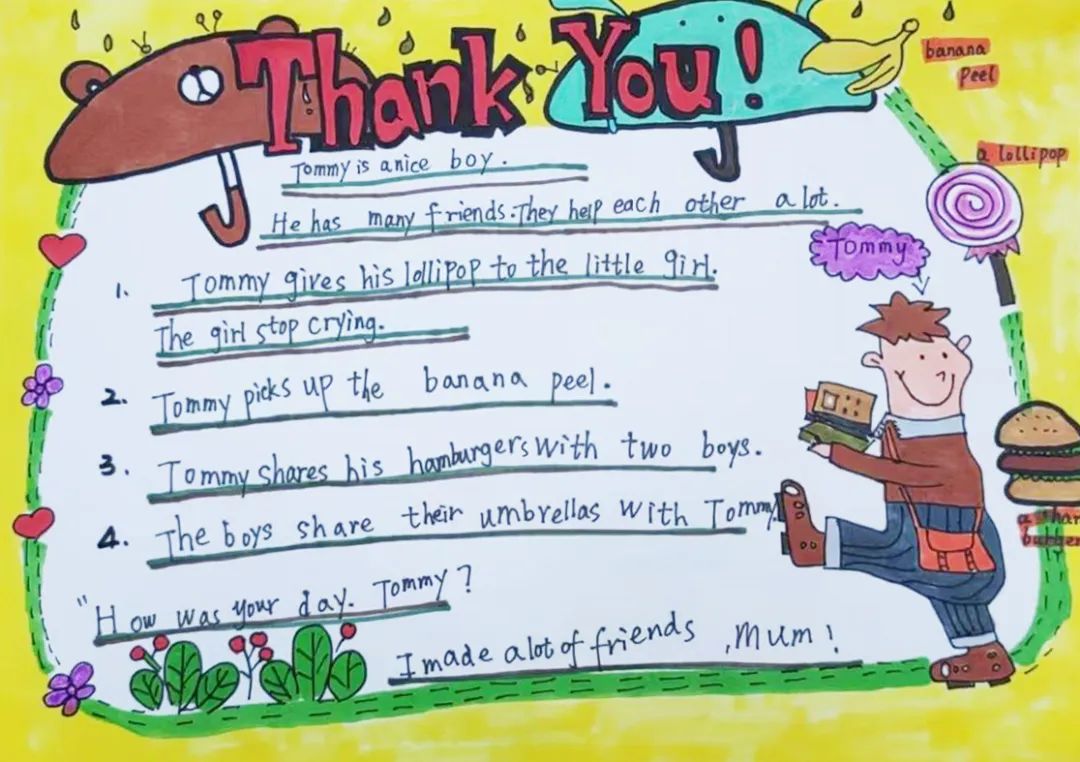 Thank You!
banana
peel
a lollipop
Tommy is a nice boy.
He has many friends. They help each other a lot.
Tommy
1. Tommy gives his lollipop to the little girl.
The girl stop crying.
2. Tommy picks up the banana peel.
3. Tommy shares his hamburgers with two boys.
4. The boys share their umbrellas with Tommy.
a
burger
"How was your day. Tommy?
I made a lot of friends, Mum!